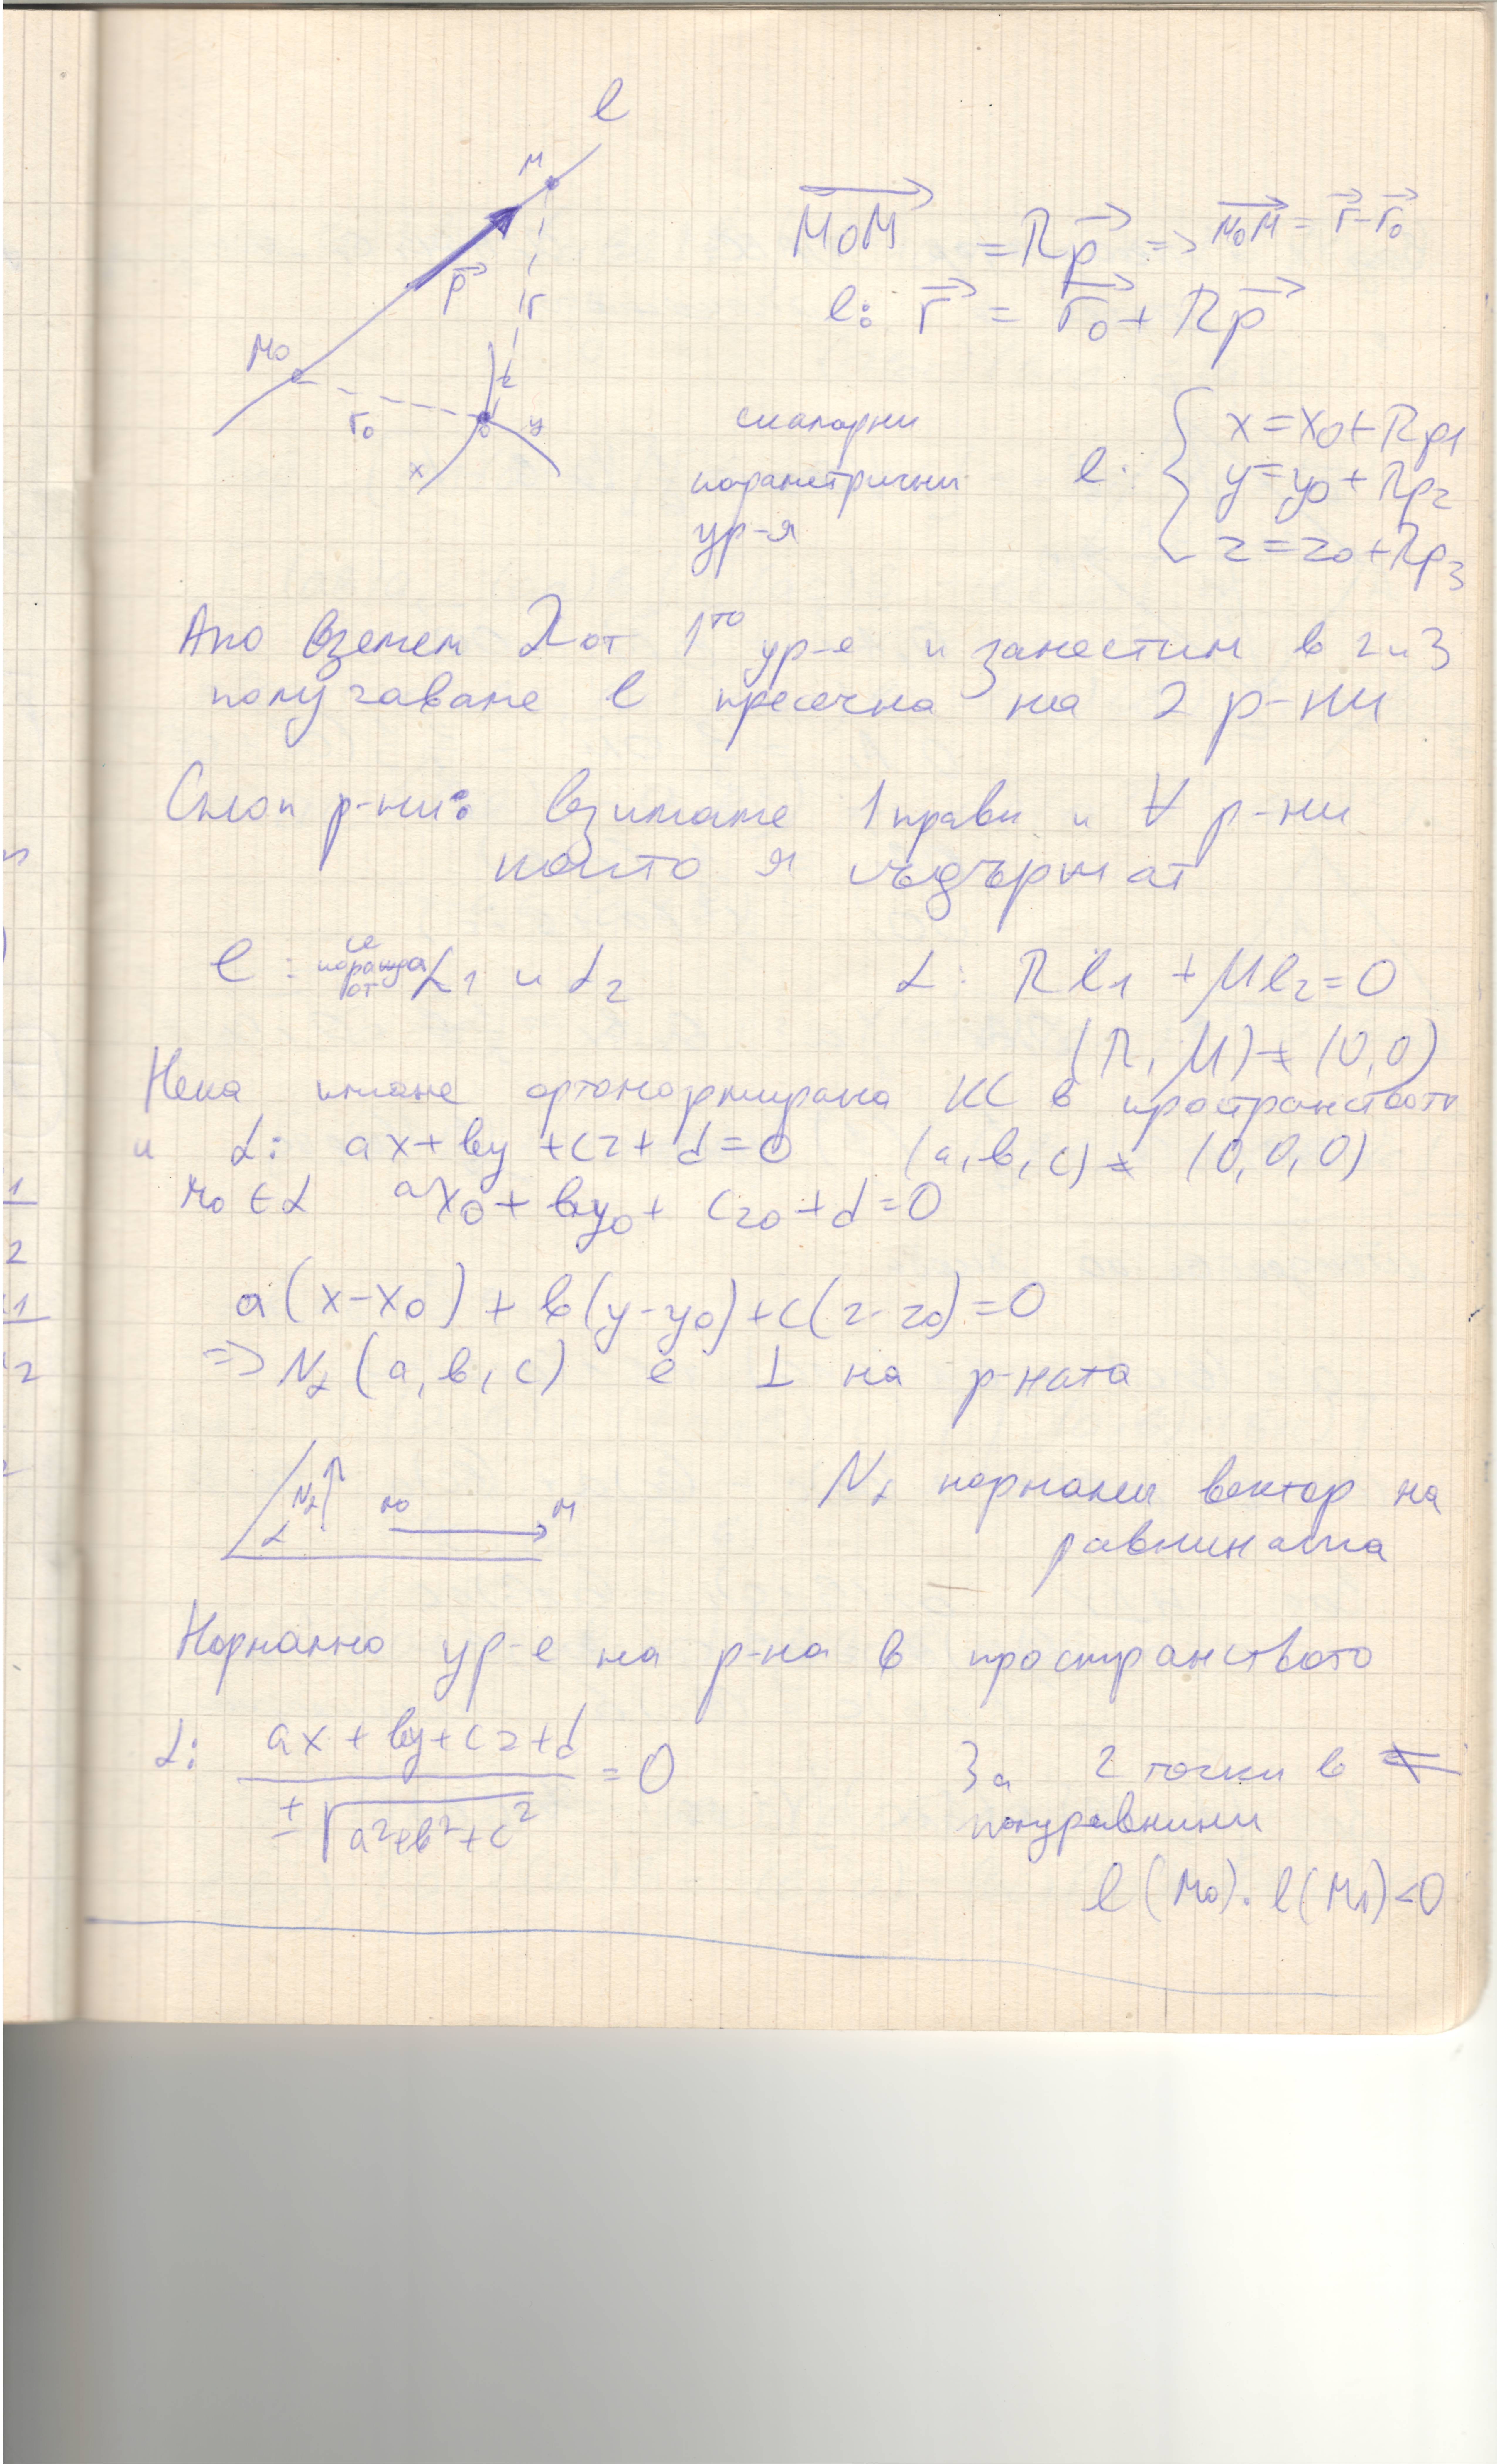 l
M
p⃗
r
M₀
r₀
z
0
y
x
M₀M⃗ = λp⃗ => M₀M⃗ = r⃗ - r⃗₀
l: r⃗ = r⃗₀ + λp⃗
скаларни
параметрични
ур-я
l: { x = x₀ + λp₁
y = y₀ + λp₂
z = z₀ + λp₃
Ако вземем λ от 1то ур-е и заместим в 2 и 3
получаваме l пресечна на 2 р-ни
Сноп р-ни: взимаме 1 права и ∀ р-ни
които я съдържат
l: се поражда от α₁ и α₂
α: λl₁ + μl₂ = 0
(λ, μ) ≠ (0,0)
Нека имаме ортонормирана КС в пространството
и α: ax + by + cz + d = 0 (a, b, c) ≠ (0, 0, 0)
M₀ ∈ α ax₀ + by₀ + cz₀ + d = 0
a(x-x₀) + b(y-y₀) + c(z-z₀) = 0
=> Nα (a, b, c) е ⊥ на р-ната
Nα
α
M₀
M
Nα нормален вектор на
равнината
Нормално ур-е на р-на в пространството
α: (ax + by + cz + d) / (± √(a² + b² + c²)) = 0
За 2 точки в
полуравнини
l(M₀) . l(M₁) < 0
1
2
1
2